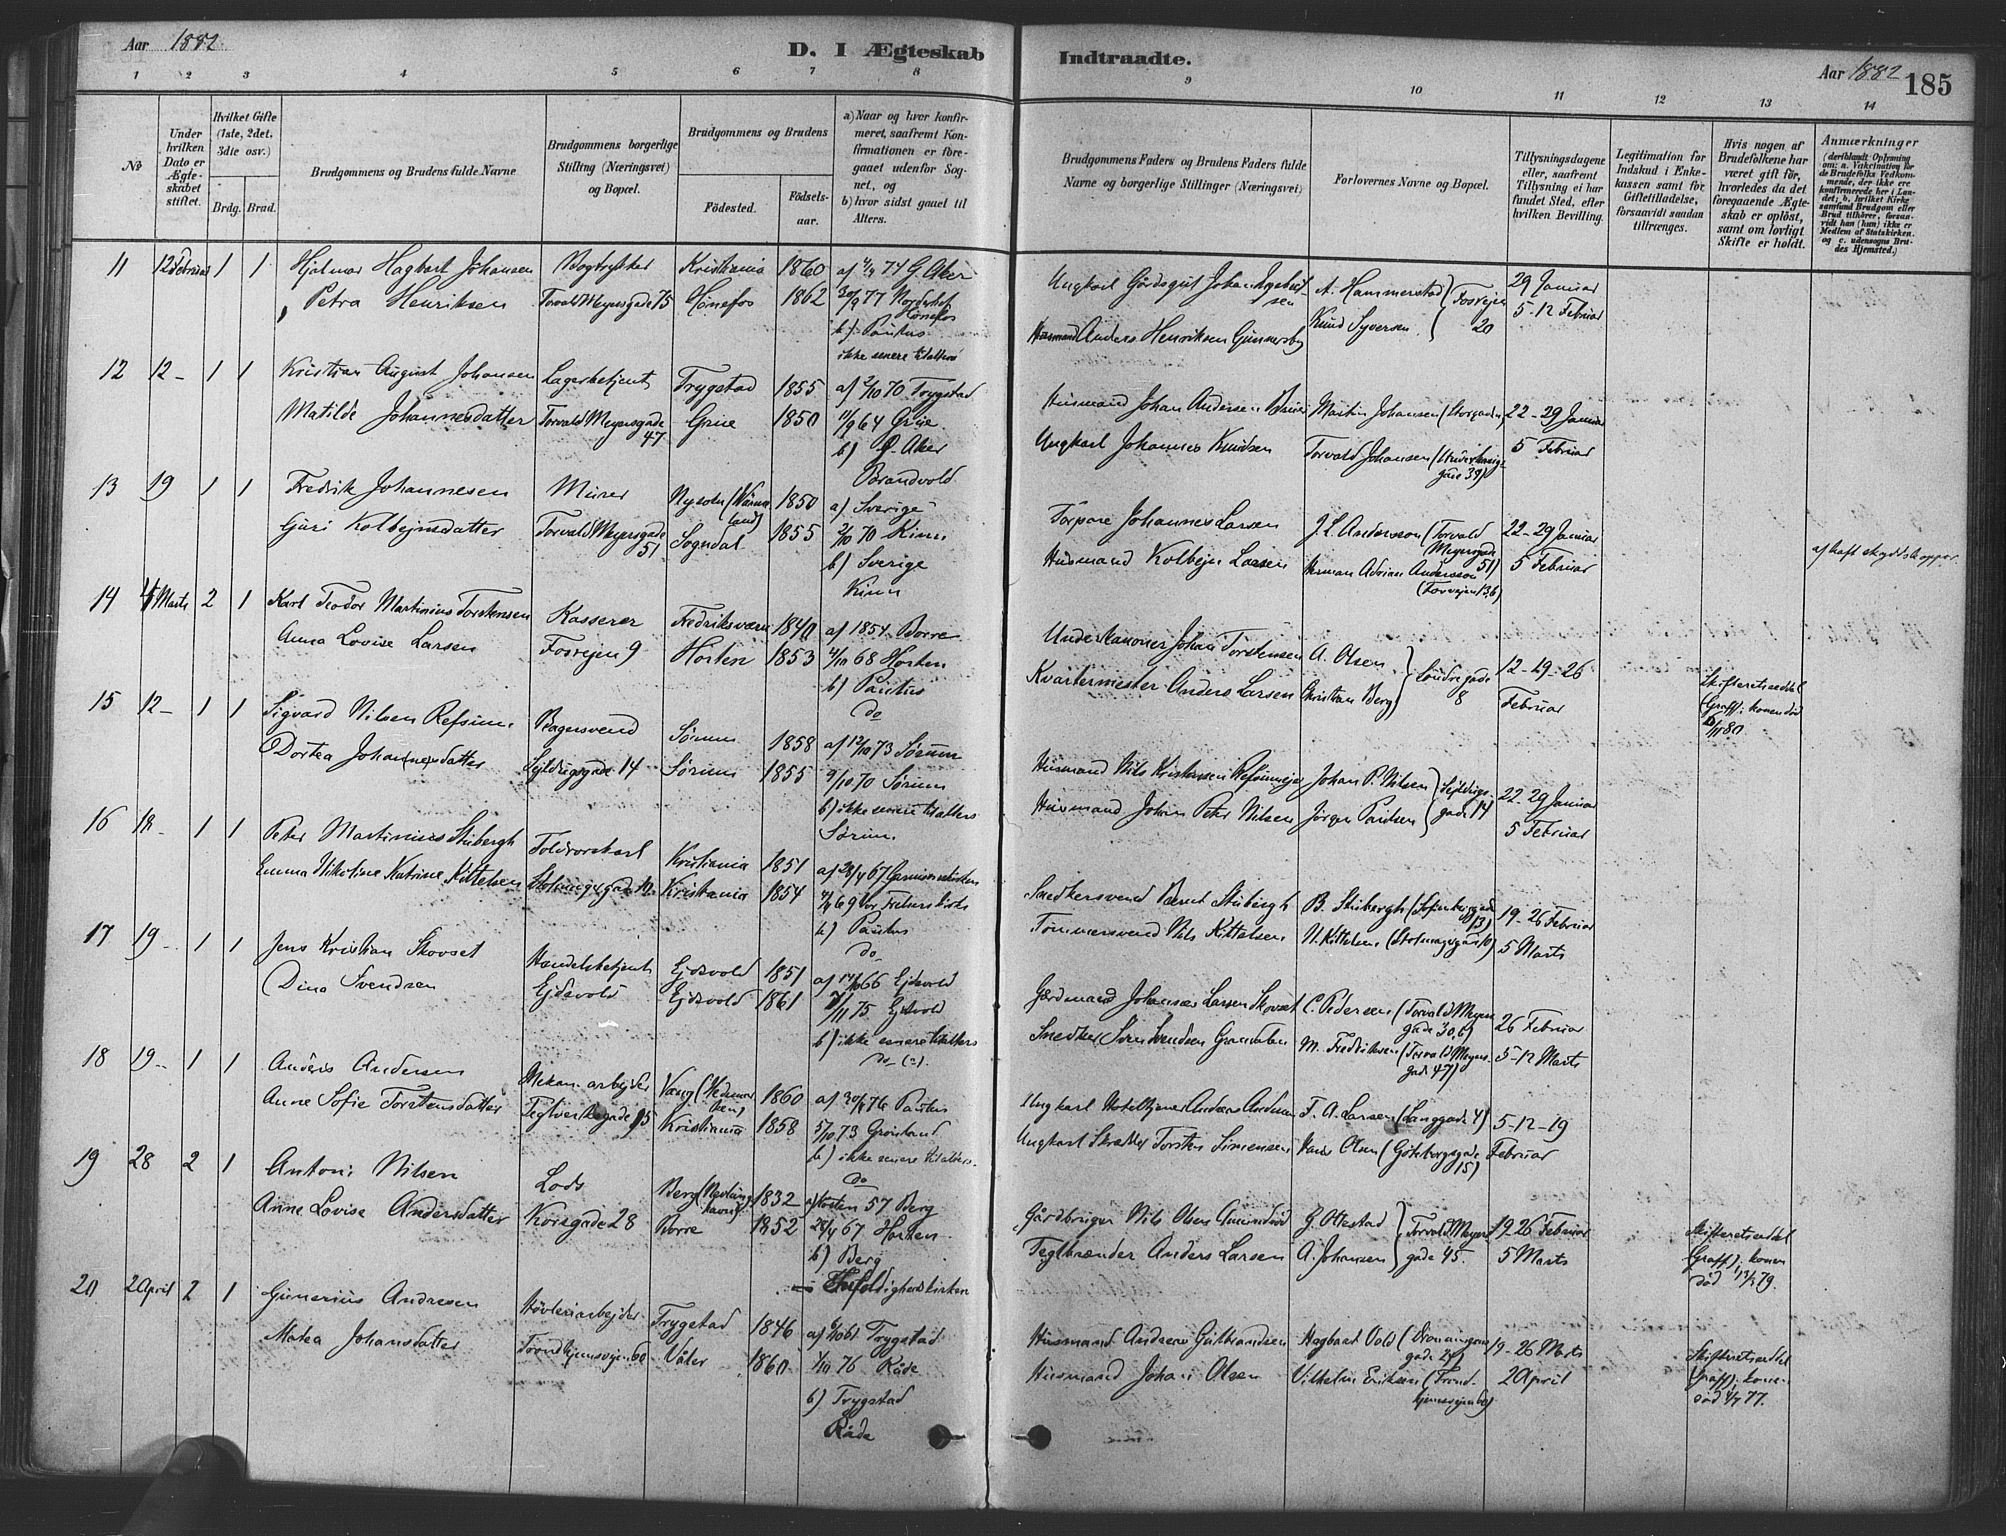 Aar 1882
D. I Ægteskab Indtraadte.
Aar 1882 185
1 2 3 4 5 6 7 8 9 10 11 12 13 14
No
Under hvilken Dato er Ægteskabet stiftet.
Hvilket Gifte (1ste, 2det. 3die osv.)
Brdg. Brud.
Brudgommens og Brudens fulde Navne
Brudgommens borgerlige Stilling (Næringsvei) og Bopæl.
Brudgommens og Brudens
Fødested. Fødselsaar.
a) Naar og hvor konfirmeret, saafremt Konfirmationen er foregaaet udenfor Sognet, og
b) hvor sidst gaaet til Alters.
Brudgommens Faders og Brudens Faders fulde Navne og borgerlige Stillinger (Næringsvei)
Forlovernes Navne og Bopæl.
Tillysningsdagene eller, saafremt Tillysning ei har fundet Sted, efter hvilken Bevilling.
Legitimation for Indskud i Enkekassen samt for Giftetilladelse, forsaavidt saadan tiltrænges.
Hvis nogen af Brudefolkene har været gift før, hvorledes da det foregaaende Ægteskab er opløst, samt om lovligt Skifte er holdt.
Anmærkninger
11 12 Februar 1 1 Hjalmar Hagbart Johansen Bogtrykker Kristiania 1860 a) 74 G. Aker
Petra Henriksen Torvald Meyersgade 75 Hønefos 1862 30/9 77 Norderhov Hønefos
b) Paulus
ikke senere til alters
Ungkarl Gårdsgut Johan
Husmand Anders Henriksen Gunnersby
A. Hammerstad Fosvejen
Knud Syversen 20
29 Januar
5-12 Februar
12 12 - 1 1 Kristian August Johansen Lagerbetjent Trygstad 1855 a) 2/10 70 Trygstad
Matilde Johannesdatter Torvald Meyersgade 47 Grue 1850 11/9 64 Grue
b) G. Aker
Brandvold
Husmand Johan Andersen
Ungkarl Johannes Knudsen
Martin Johansen (Storgaden
Torvald Johansen
22-29 Januar
5 Februar
13 19 1 1 Fredrik Johannesen Murer Nysoln (Värmland) 1850 a) Sverige
Guri Kolbejnsdatter Torvald Meyersgade 51 Sogndal 1855 2/10 70 Kinn
b) Sverige
Kinn
Torpare Johannes Larsen
Husmand Kolbejn Larsen
J. L. Andersson (Torvald Meyersgade 51)
Herman Adrian Andersson
22-29 Januar
5 Februar
14 Marts 2 1 Karl Teodor Martinius Torstensen Kasserer Fredriksværn 1840 a) 1854 Borre
Anna Lovise Larsen Fosvejen 9 Horten 1853 4/10 68 Horten
b) Paulus
do
Underkanoner Johan Torstensen
Kvartermester Anders Larsen
A. Olsen
Christian Berg
8
12-19-26
Februar
Skifteretsseddel (Graff); konen død /11 80
15 12 - 1 1 Sigvard Nilsen Refsum Bagersvend Sørum 1858 a) 12/10 73 Sørum
Dortea Johannesdatter Sejldugsgade 14 Sørum 1855 9/10 70 Sørum
b) ikke senere til alters
Sørum
Husmand Nils Kristensen
Husmand Johan Peter Nilsen
Johan P. Nilsen Sejldugs-
Jørgen Paulsen gade 14
22-29 Januar
5 Februar
16 18 - 1 1 Peter Martinius Stubergh Toldvorskarl Kristiania 1851 a) 28/4 67 Garnisonskirken
Emma Nikoline Katrine Kittelsen Kristiania 1854 4/4 69 Vor Frelsers Kirke
b) Paulus
do
Snedkersvend Bernt Stubergh
Tømmersvend Nils Kittelsen
B. Stubergh (Sofienberggade
N. Kittelsen
19-26 Februar
5 Marts
17 19 - 1 1 Jens Kristian Skovset Handelsbetjent Ejdsvold 1851 a) 14/10 66 Ejdsvold
Dina Svendsen Ejdsvold Ejdsvold 1861 7/11 75 Ejdsvold
b) ikke senere til alters
do
Gårdmand Johannes Larsen Skovset
Snedker Svendsen
C. Pedersen (Torvald Meyersgade 30,6)
M. Fredriksen (Torvald Meyersgade 47)
26 Februar
5-12 Marts
18 19 - 1 1 Anders Andersen Mekan. arbejder Vang (Hedemarken) 1860 a) 30/4 76 Paulus
Anne Sofie Torstensdatter Teglverksgade 15 Kristiania 1858 5/10 73 Grønland
b) ikke senere til alters
do
Ungkarl Anders Andersen
Ungkarl Skrædder Torsten Simensen
F. A. Larsen (Langgade 4)
Hans Olsen (Gøteborggade 15)
5-12-19
Februar
19 28 2 1 Anton Nilsen Lods Berg (Nevlunghavn) 1832 a) høsten 57 Berg
Anne Lovise Andersdatter Korsgade 28 Borre 1852 28/4 67 Horten
b) Berg
Trefoldighedskirken
Gårdbruger Nils Olsen
Teglbrænder Anders Larsen
G. Oltestad Torvald Meyers-
A. Johansen gade 45.
19-26 Februar
5 Marts
Skifteretsseddel (Graff); konen død 13/ 79.
20 2 April 2 1 Gunerius Andresen Høvleriarbejder Trygstad 1846 a) 6/10 61 Trygstad
Matea Johansdatter Trondhjemsvejen 60 Våler 1860 1/10 76 Råde
b) Trygstad
Råde
Husmand Andreas Gulbrandsen
Husmand Johan Olsen
Hagbart Vold (Dronningensgade 24)
Vilhelm Eriksen (Trondhjemsvejen 60)
19-26 Marts
2 April
Skifteretsseddel (Graff); konen død 77.